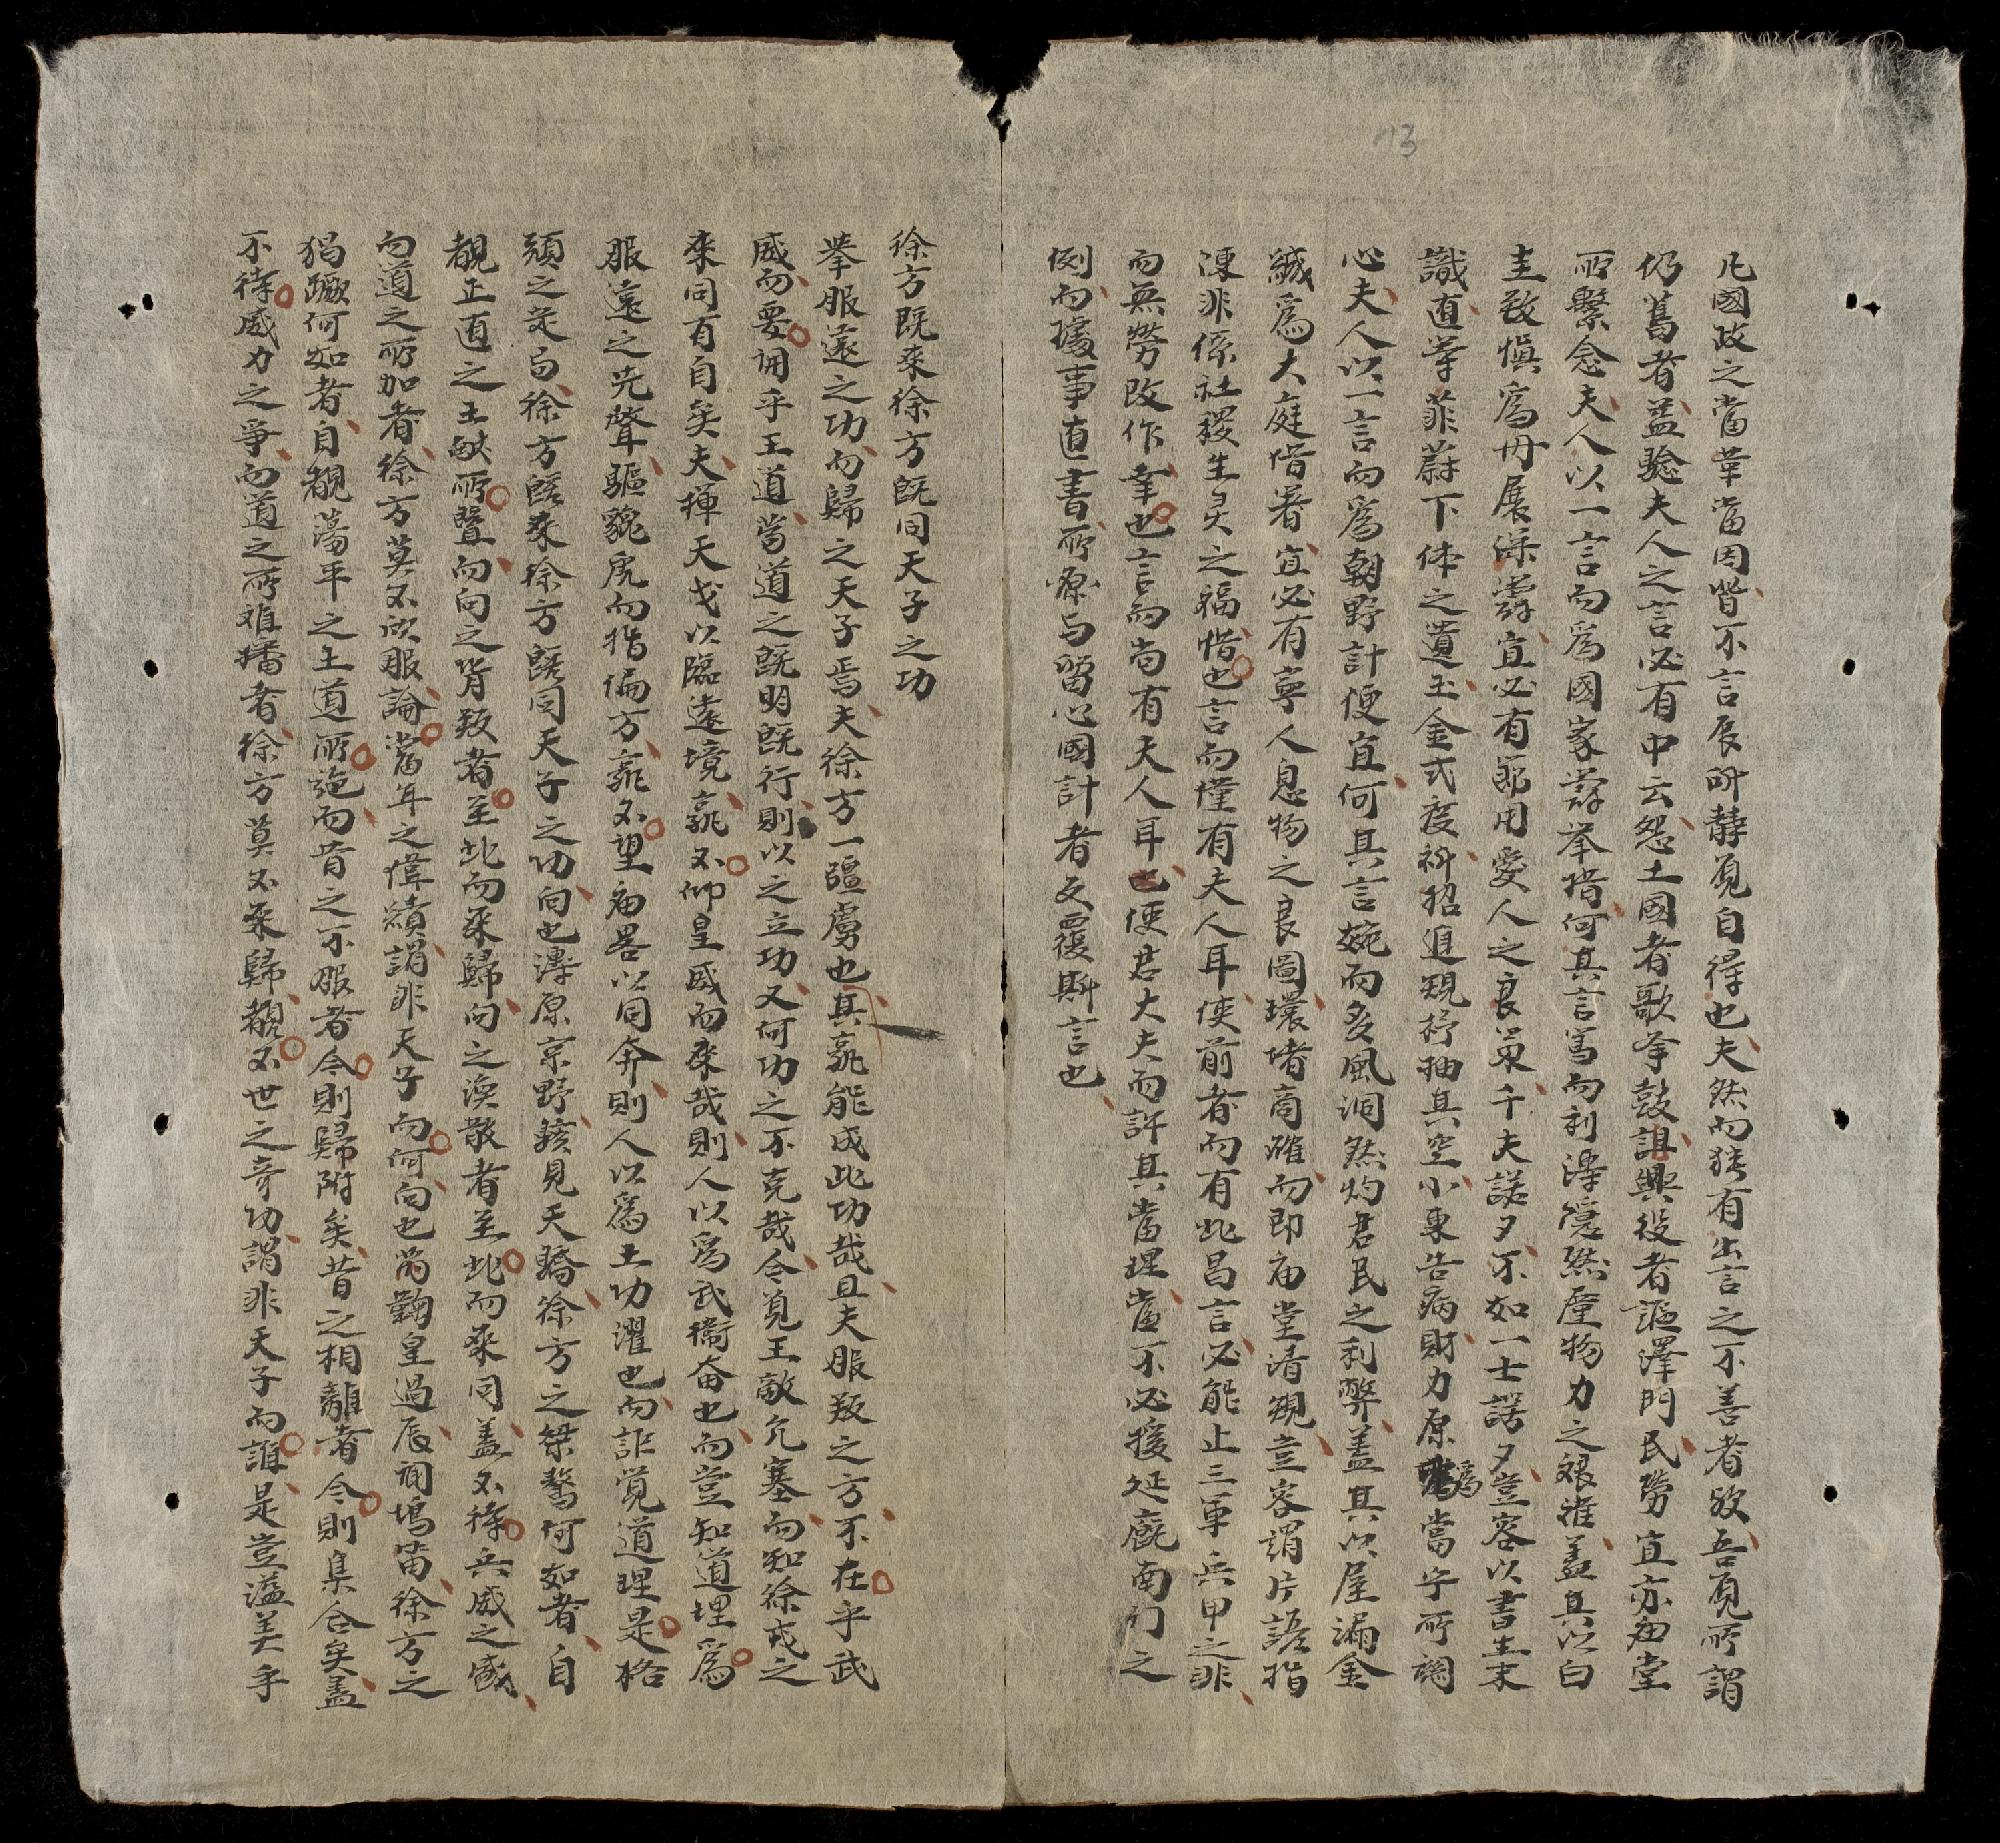 13
凡國政之當革當因皆不言辰所静覓自得也夫然而猶有出言之不善者故吾覓所謂
仍旧者益驗夫人之言必有中云怨土國者歌夆鼓詛興役者謳澤門民勞宜亦庙堂
所繫念夫人以一言而為國家辞举措何其言寓而利澤隱然壓物力之艰难盖其以白
圭致慎為毋展深辞宜必有節用爱人之良策千夫諾夕不如一士諤夕豈容以書生末
識直等菲葑下体之遺玉金式度祈招追規杼抽其空小東告病財力原為當宁所調
心夫人以一言而為朝野計便宜何其言婉而多風洞然灼君民之利弊盖其以屋漏金
緘為大庭借著宜必有寧人息物之良圖環堵商確而即庙堂清覌豈容謂片語指
陳非係社稷生灵之福惜也言而僅有夫人耳使前者而有此昌言必能止三軍兵甲之非
而無勞改作幸也言而尚有夫人耳已便君大夫而許其當理當不必援延廐南门之
例而據事直書所愿与留心國計者反覆斯言也
徐方既來徐方既同天子之功
举服遠之功而歸之天子焉夫徐方一疆虜也其孰能成此功哉且夫服叛之方不在乎武
威而要明乎王道當道之既明既行則以之立功又何功之不克哉今覓王敵允塞而知徐戎之
來同有自矣夫揮天戈以臨遠境孰不仰皇威而來哉則人以為武衛奋也而豈知道理為
服遠之先聲驅貔虎而指偏方孰不望庙畧以同奔則人以為土功濯也而詎覚道理是格
頑之定与徐方既來徐方既同天子之功向也溥原京野駭見天驕徐方之桀驁何如者自
覩正直之王猷所暨而向之背叛者至此而來歸向之渙散者至此而來同盖不待兵威之盛
而道之所加者徐方莫不欣服論當年之偉績謂非天子而何向也當鞠皇過辰词塢笛徐方之
猖蹶何如者自覩蕩平之王道所施而昔之不服者今則歸附矣昔之相離者今則集合矣盖
不待威力之争而道之所难播者徐方莫不來歸覩不世之奇功謂非天子而誰是豈溢美乎